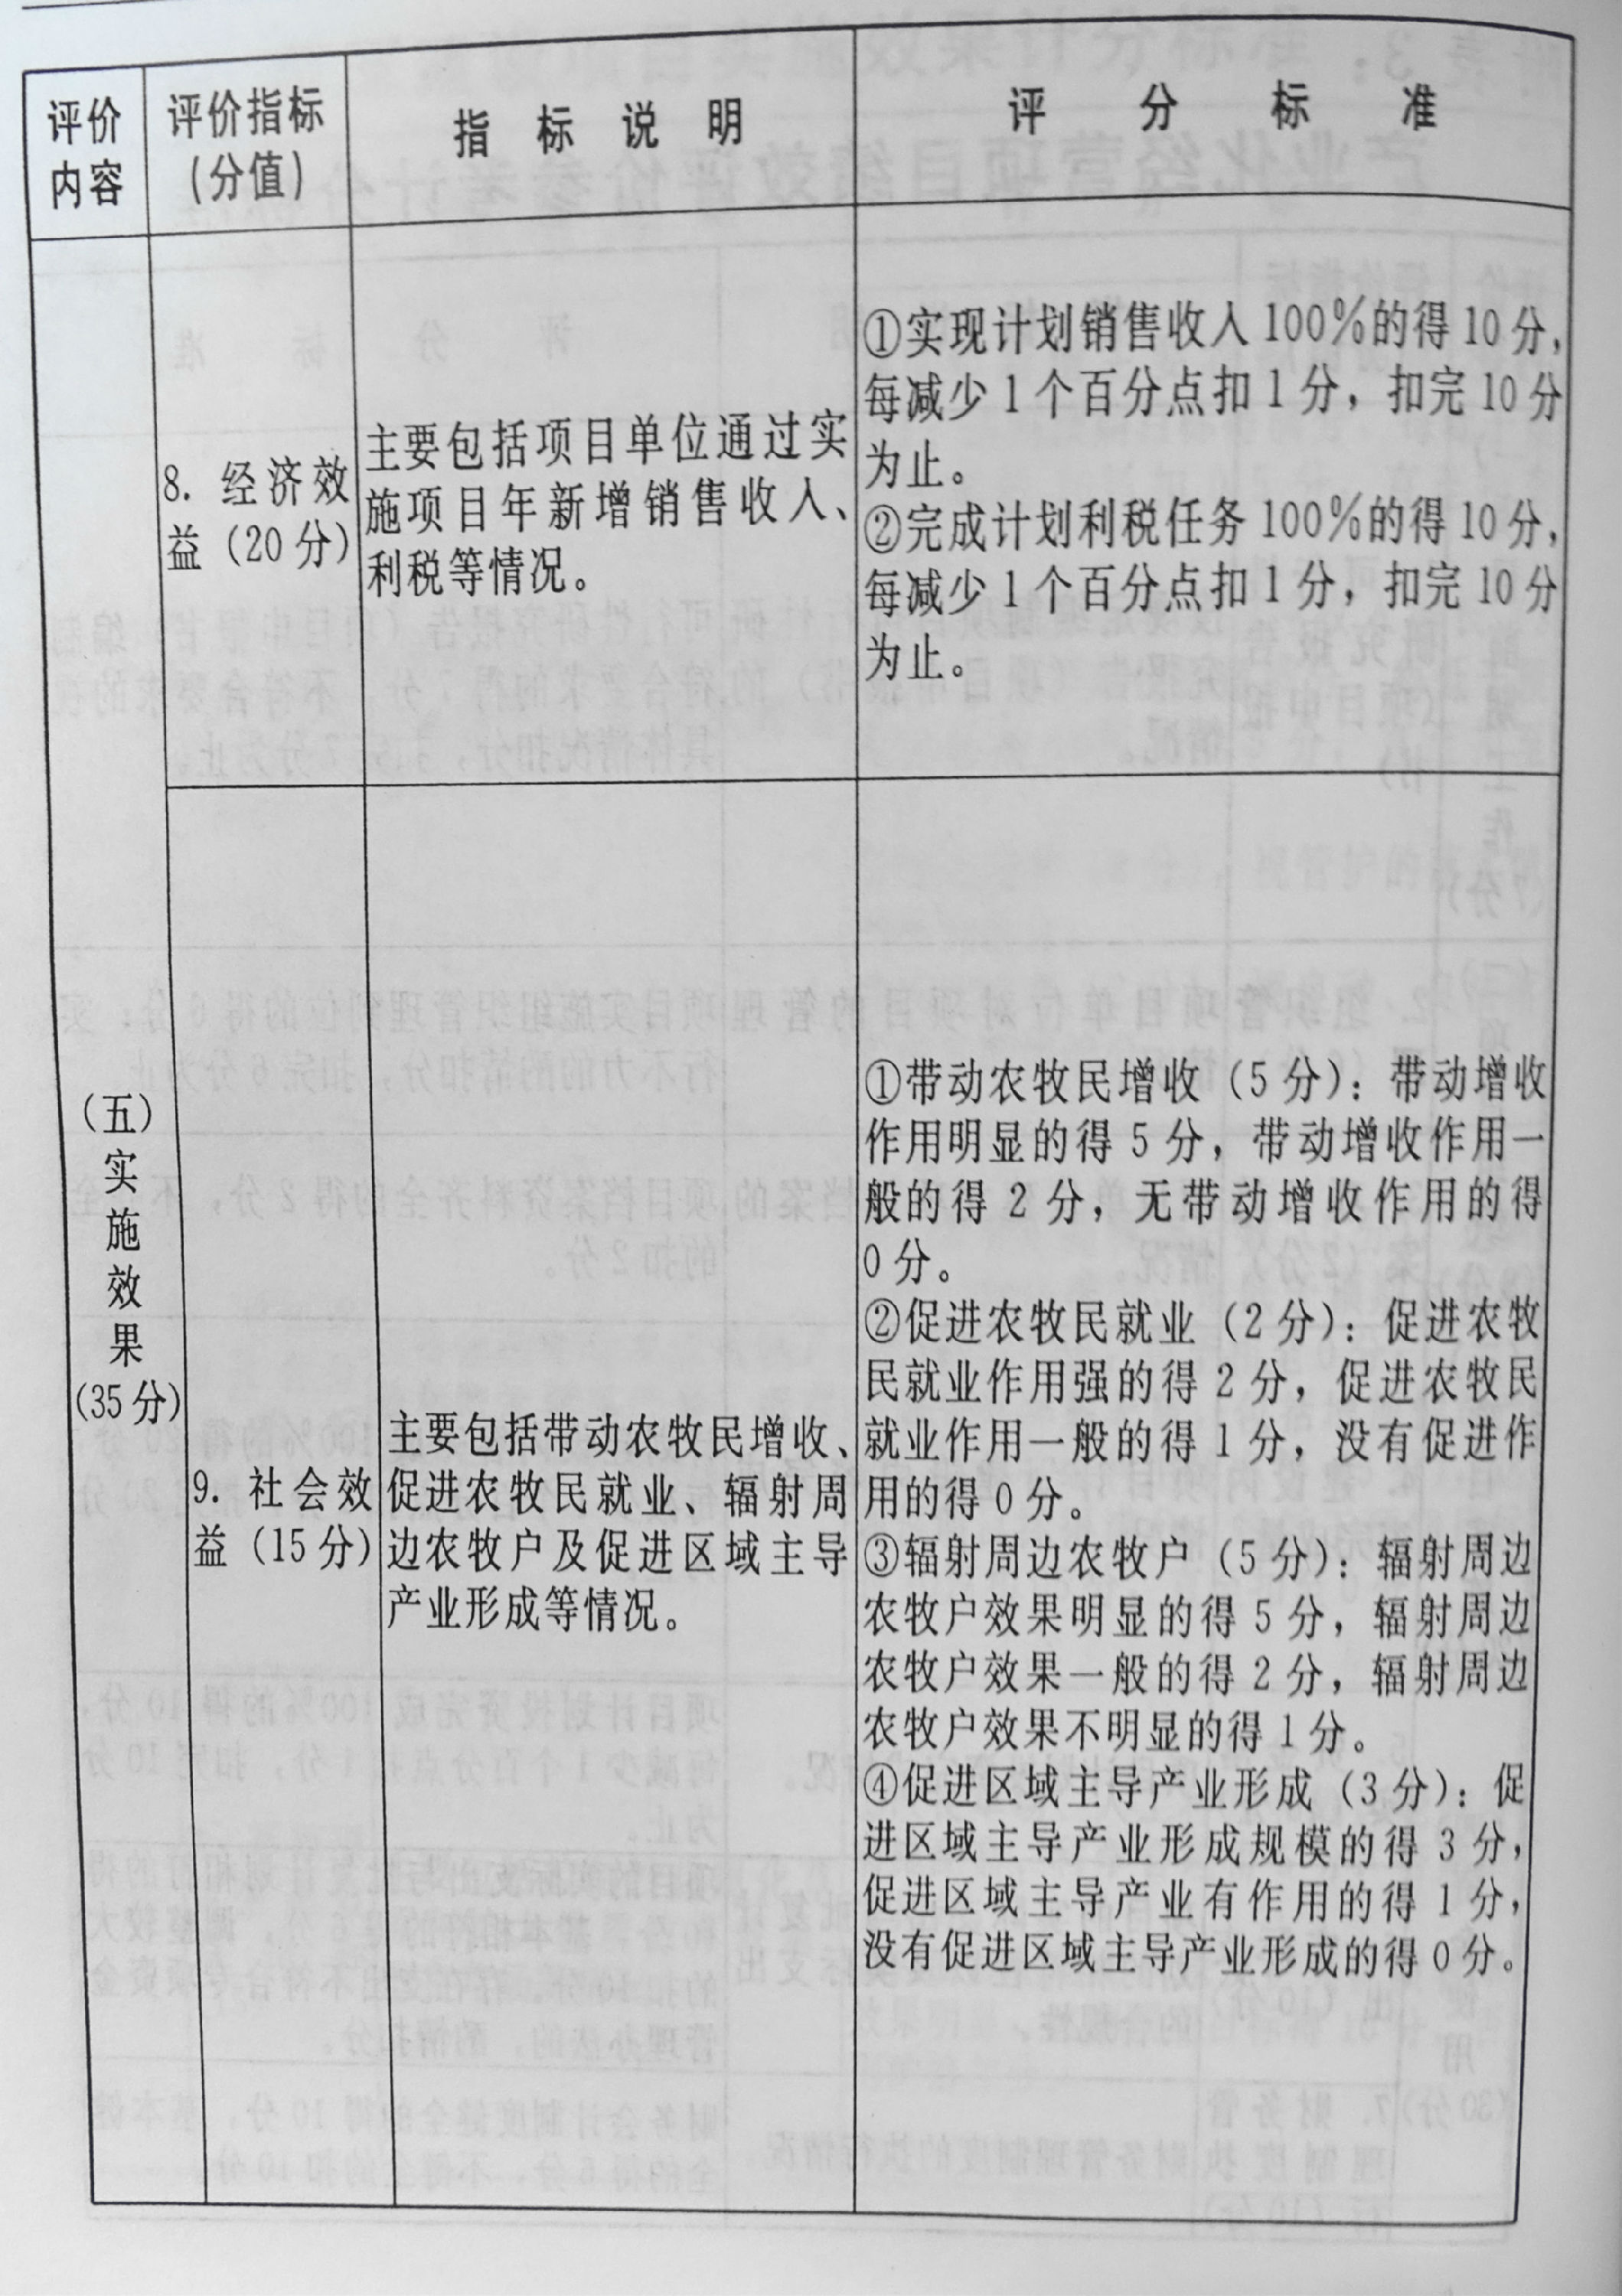 评价
内容
评价指标
(分值)
指标说明
评分标准
(五)
实
施
效
果
(35分)
8. 经济效
益(20分)
主要包括项目单位通过实
施项目年新增销售收入、
利税等情况。
①实现计划销售收入100%的得10分,
每减少1个百分点扣1分,扣完10分
为止。
②完成计划利税任务100%的得10分,
每减少1个百分点扣1分,扣完10分
为止。
9. 社会效
益(15分)
主要包括带动农牧民增收、
促进农牧民就业、辐射周
边农牧户及促进区域主导
产业形成等情况。
①带动农牧民增收(5分):带动增收
作用明显的得5分,带动增收作用一
般的得2分,无带动增收作用的得
0分。
②促进农牧民就业(2分):促进农牧
民就业作用强的得2分,促进农牧民
就业作用一般的得1分,没有促进作
用的得0分。
③辐射周边农牧户(5分):辐射周边
农牧户效果明显的得5分,辐射周边
农牧户效果一般的得2分,辐射周边
农牧户效果不明显的得1分。
④促进区域主导产业形成(3分):促
进区域主导产业形成规模的得3分,
促进区域主导产业有作用的得1分,
没有促进区域主导产业形成的得0分。